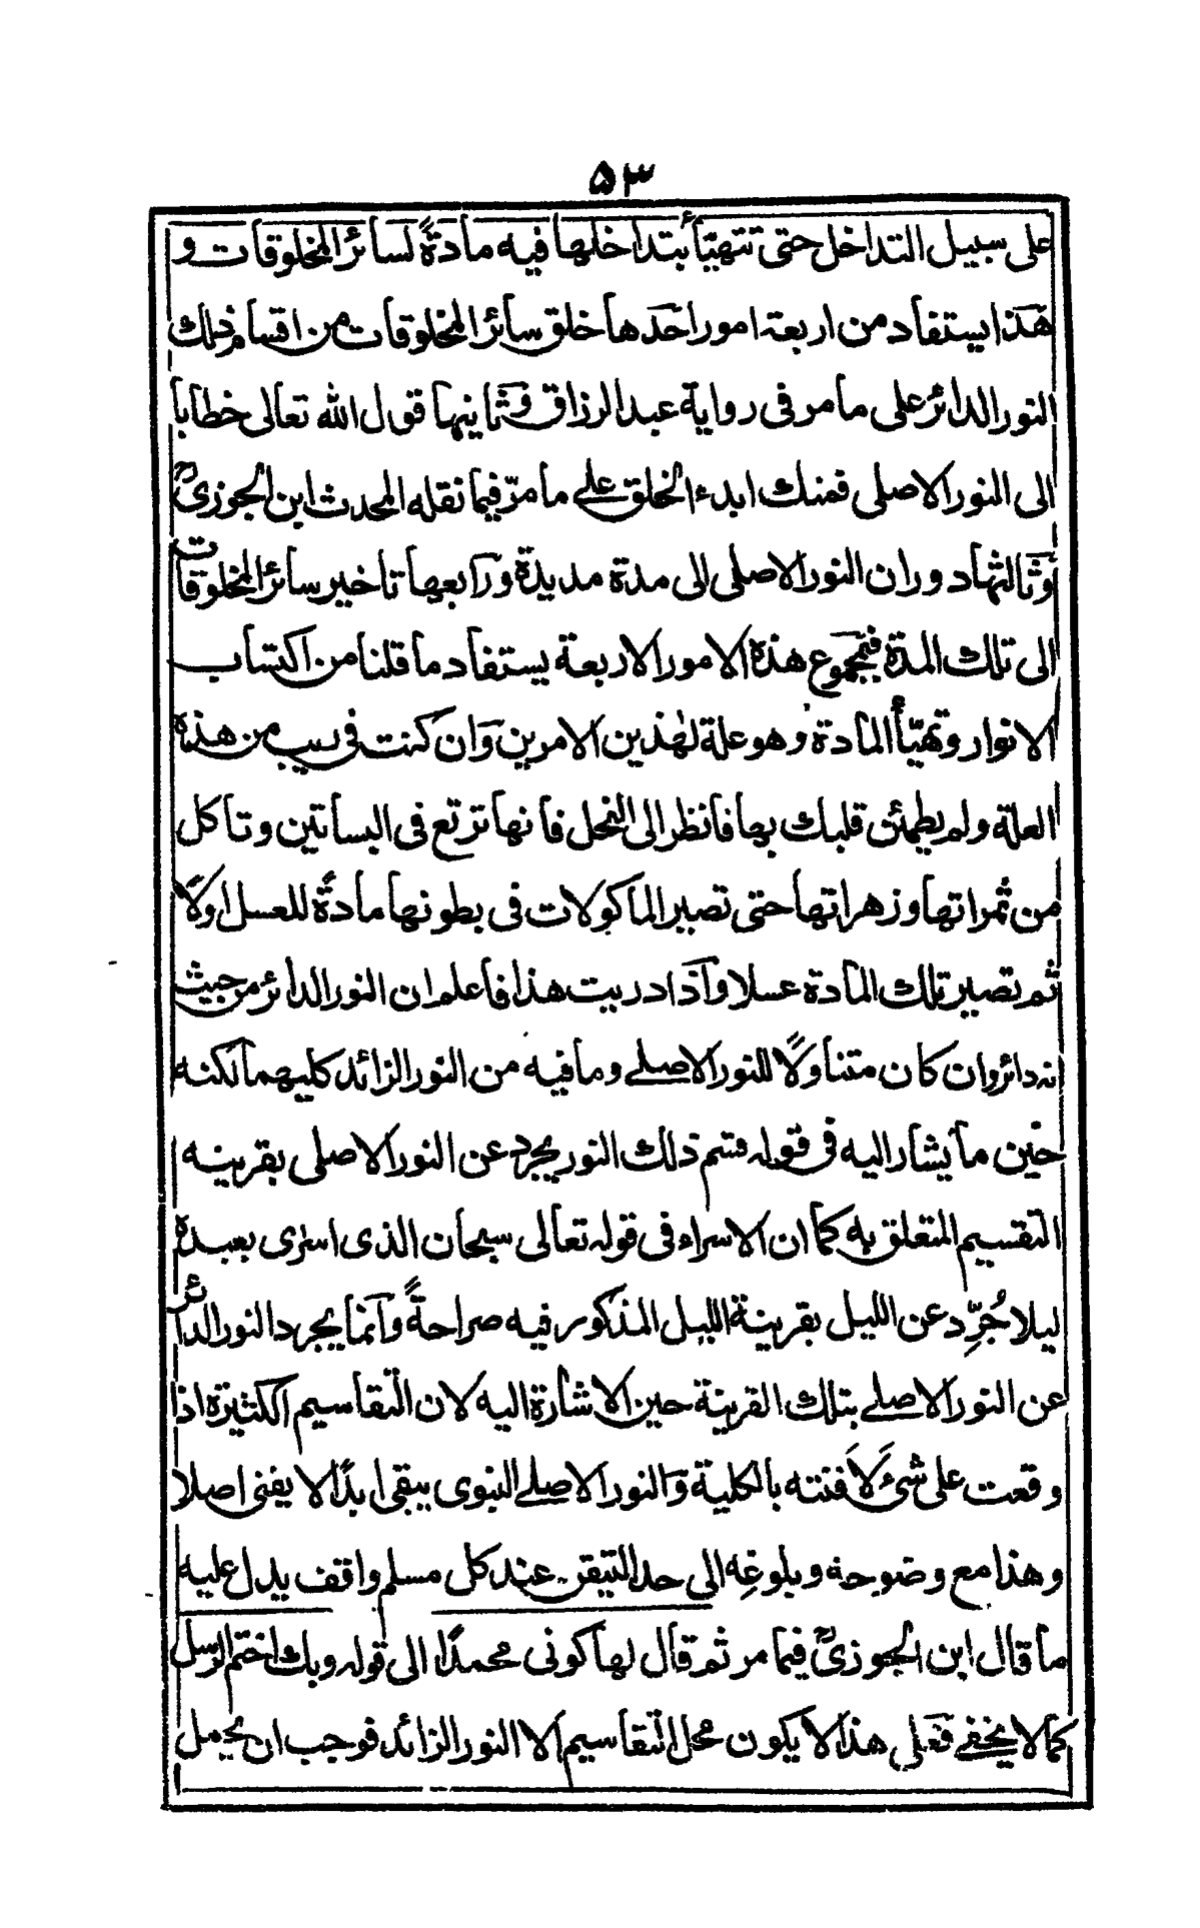 ۵۳
على سبيل التداخل حتى تتهيّأ بتداخلها فيه مادةً لسائر المخلوقات و
هذا يستفاد من اربعة امور احدها خلق سائر المخلوقات من اقسام ذلك
النور الدائر على ما مر فى رواية عبد الرزاق وثانيها قول الله تعالى خطابا
الى النور الاصلى فمنك ابدء الخلق على ما مرّ فيما نقله المحدث ابن الجوزىؒ
وثالثها دوران النور الاصلى الى مدة مديدة ورابعها تاخير سائر المخلوقات
الى تلك المدة فبمجموع هذه الامور الاربعة يستفاد ما قلنا من اكتساب
الانوار وتهيّأ المادة وهو علة لهٰذين الامرين وان كنت فى ريب من هذه
العلة ولم يطمئن قلبك بها فانظر الى النحل فانها ترتع فى البساتين وتاكل
من ثمراتها وزهراتها حتى تصير الماكولات فى بطونها مادةً للعسل اولًا
ثم تصير تلك المادة عسلا واذا دريت هذا فاعلم ان النور الدائر من حيث
انه دائر وان كان متناولًا للنور الاصلے وما فيه من النور الزائد كليهما لكنه
حين ما يشار اليه فى قوله قسم ذلك النور يجرد عن النور الاصلى بقرينه
التقسيم المتعلق به كما ان الاسراء فى قوله تعالى سبحان الذى اسرٰى بعبده
ليلا جُرِّد عن الليل بقرينة الليل المذكور فيه صراحةً وانما يجرد النور الدائر
عن النور الاصلے بتلك القرينة حين الاشارة اليه لان التقاسيم الكثيرة اذا
وقعت على شئ لَاَفنته بالكلية والنور الاصلے النبوى يبقى ابدًا لا يفنى اصلا
وهذا مع وضوحة وبلوغِه الى حد التيقن عند كل مسلم واقف يدل عليه
ما قال ابن الجوزىؒ فيما مر ثم قال لها كونى محمدًا الى قوله وبك اختم الرسل
كما لا يخفے فعلى هذا لا يكون محل التقاسيم الا النور الزائد فوجب ان يحمل